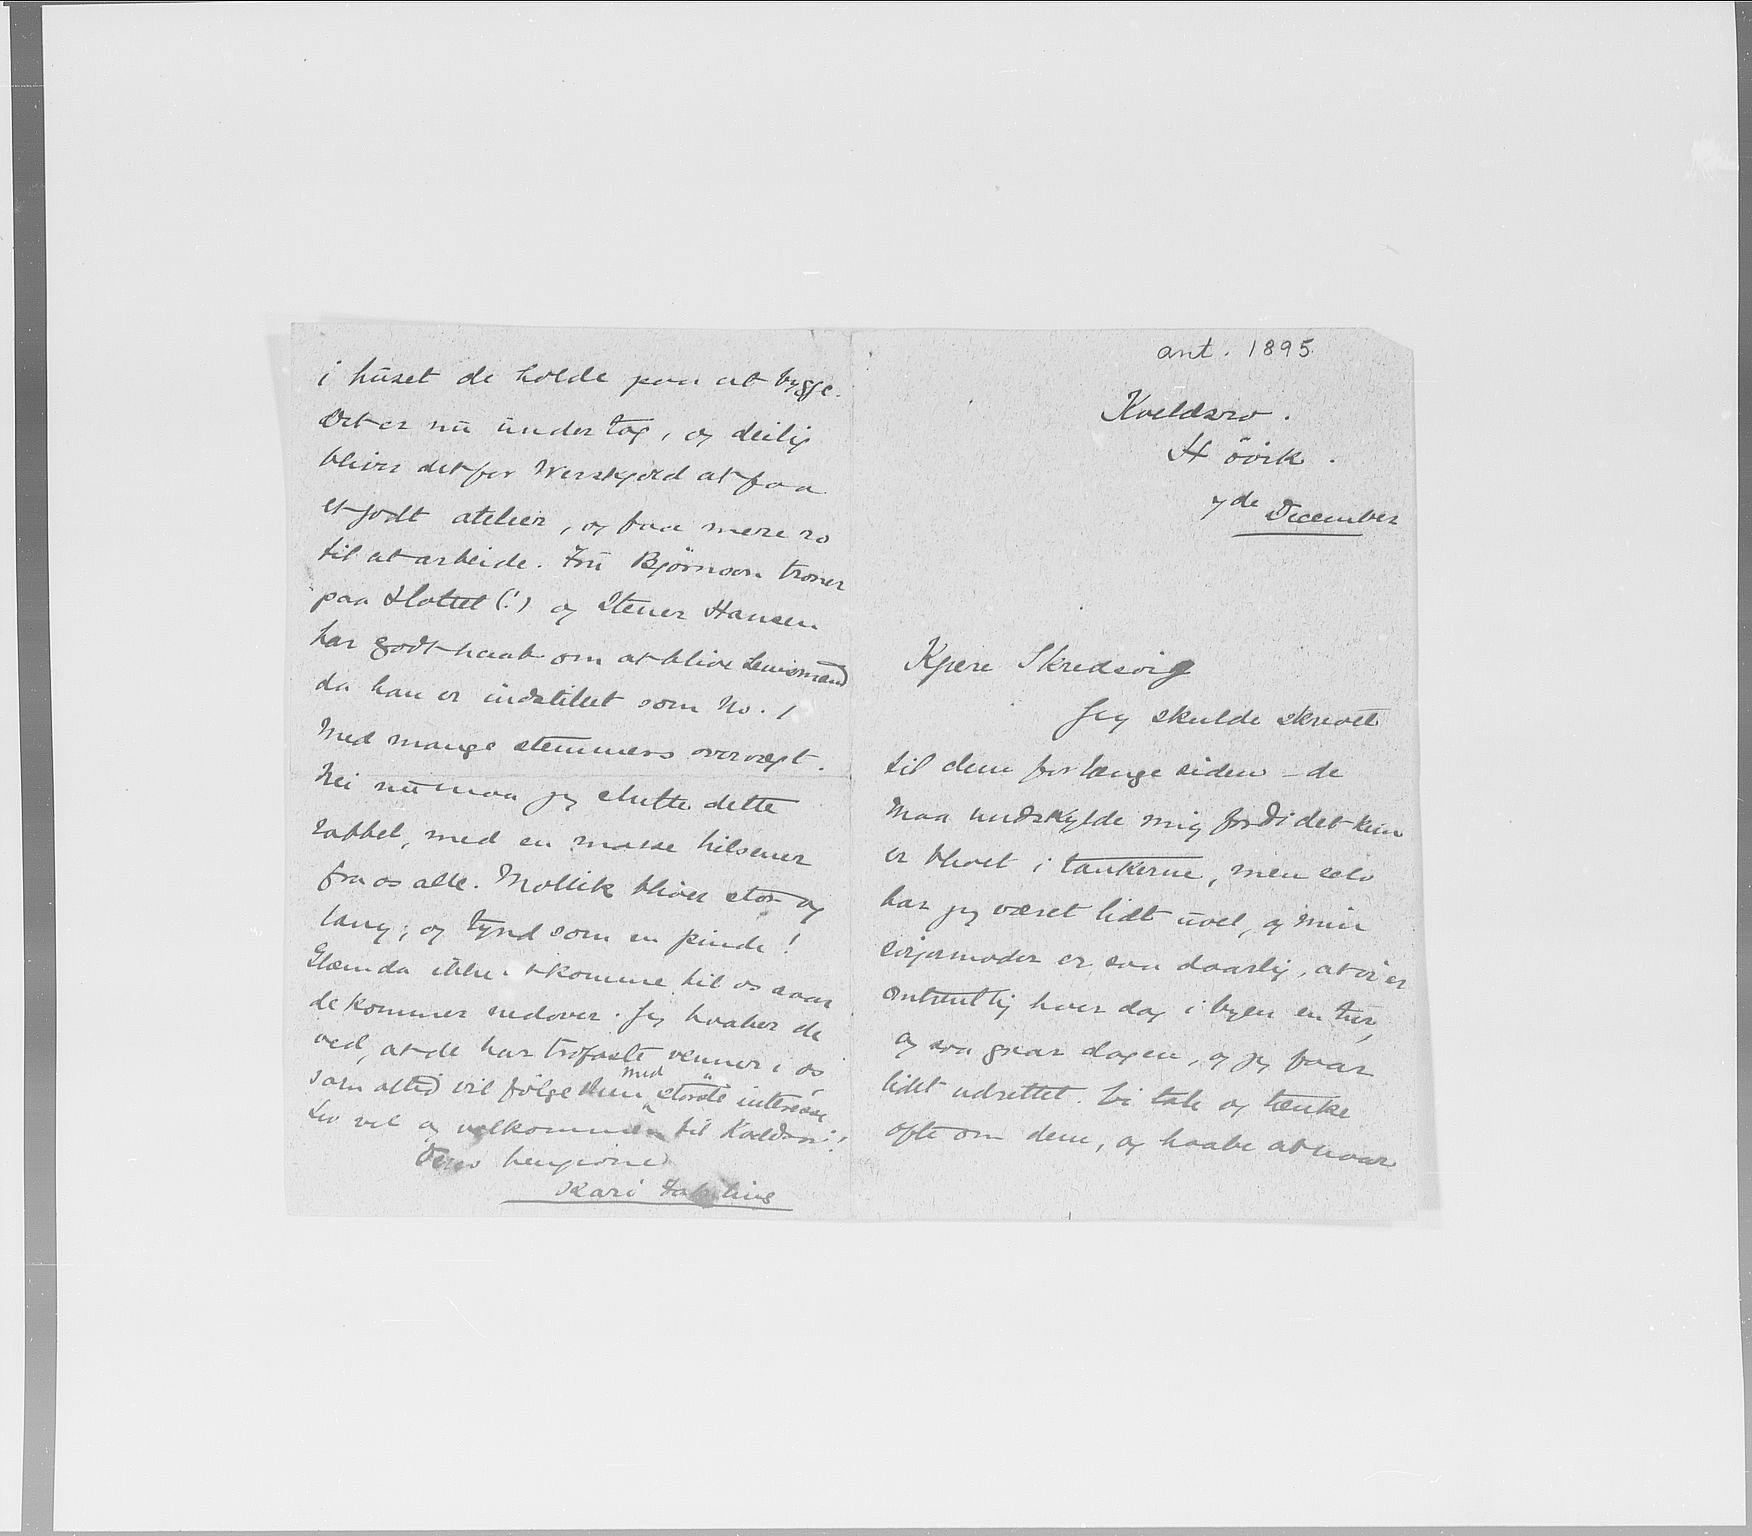 ant. 1895.
Kveldsro.
Høvik.
7de December
Kjære Skredsvig
Jeg skulde skrevet
til dem for længe siden – de
maa undskylde mig fordi det kun
er blevet i tankerne, men selv
har jeg været lidt uvel, og min
svigermoder er saa daarlig, at vi er
omtrentlig hver dag i byen en tur,
og saa gaar dagen, og jeg faar
lidt udrettet. Vi tale og tænke
ofte om dem, og haabe at naar
i huset de holde paa at bygge.
Det er nu under tag, og deilig
bliver det for Werenskjold at faa
et godt atelier, og faa mere ro
til at arbeide. Fru Bjørnson troner
paa Slottet (!) og Stener Hansen
har godt haab om at blive Lensmand
da han er indstillet som No. 1
med mange stemmers overvægt.
Nei nu maa jeg slutte dette
rabbel, med en masse hilsener
fra os alle. Mollik bliver stor og
lang, og tynd som en pinde!
Glem da ikke at komme til os naar
de kommer nedover. Jeg haaber de
ved, at de har trofaste venner i os
som altid vil følge dem med største interesse.
Lev vel og velkommen til Kveldsro!
Deres hengivne
Kari